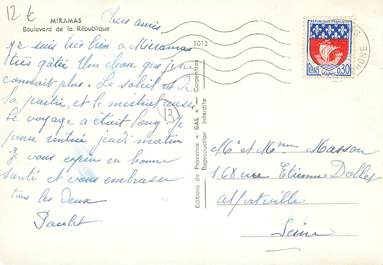 12 €
MIRAMAS
Boulevard de la République
Chers amis
Je suis très bien à Miramas
très gâtée
connait plus. Le soleil est de
la partie, et le mistral aussi.
Le voyage a été long
pour rentrer jeudi matin
Je vous espère en bonne
santé et vous embrasse
tous les deux
Paulet
13
Editions de Provence • GAL •
Reproduction Interdite
Carpentras
2012
REPUBLIQUE FRANÇAISE
POSTES
0,30
PARIS
Mr et Mme Masson
168 rue Etienne Dolet
Alfortville
Seine